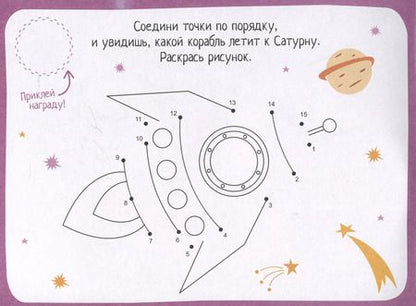 Соедини точки по порядку,
и увидишь, какой корабль летит к Сатурну.
Раскрась рисунок.
Приклей
награду!
13
14
12
11
15
10
1
9
2
8
3
7
6
4
5